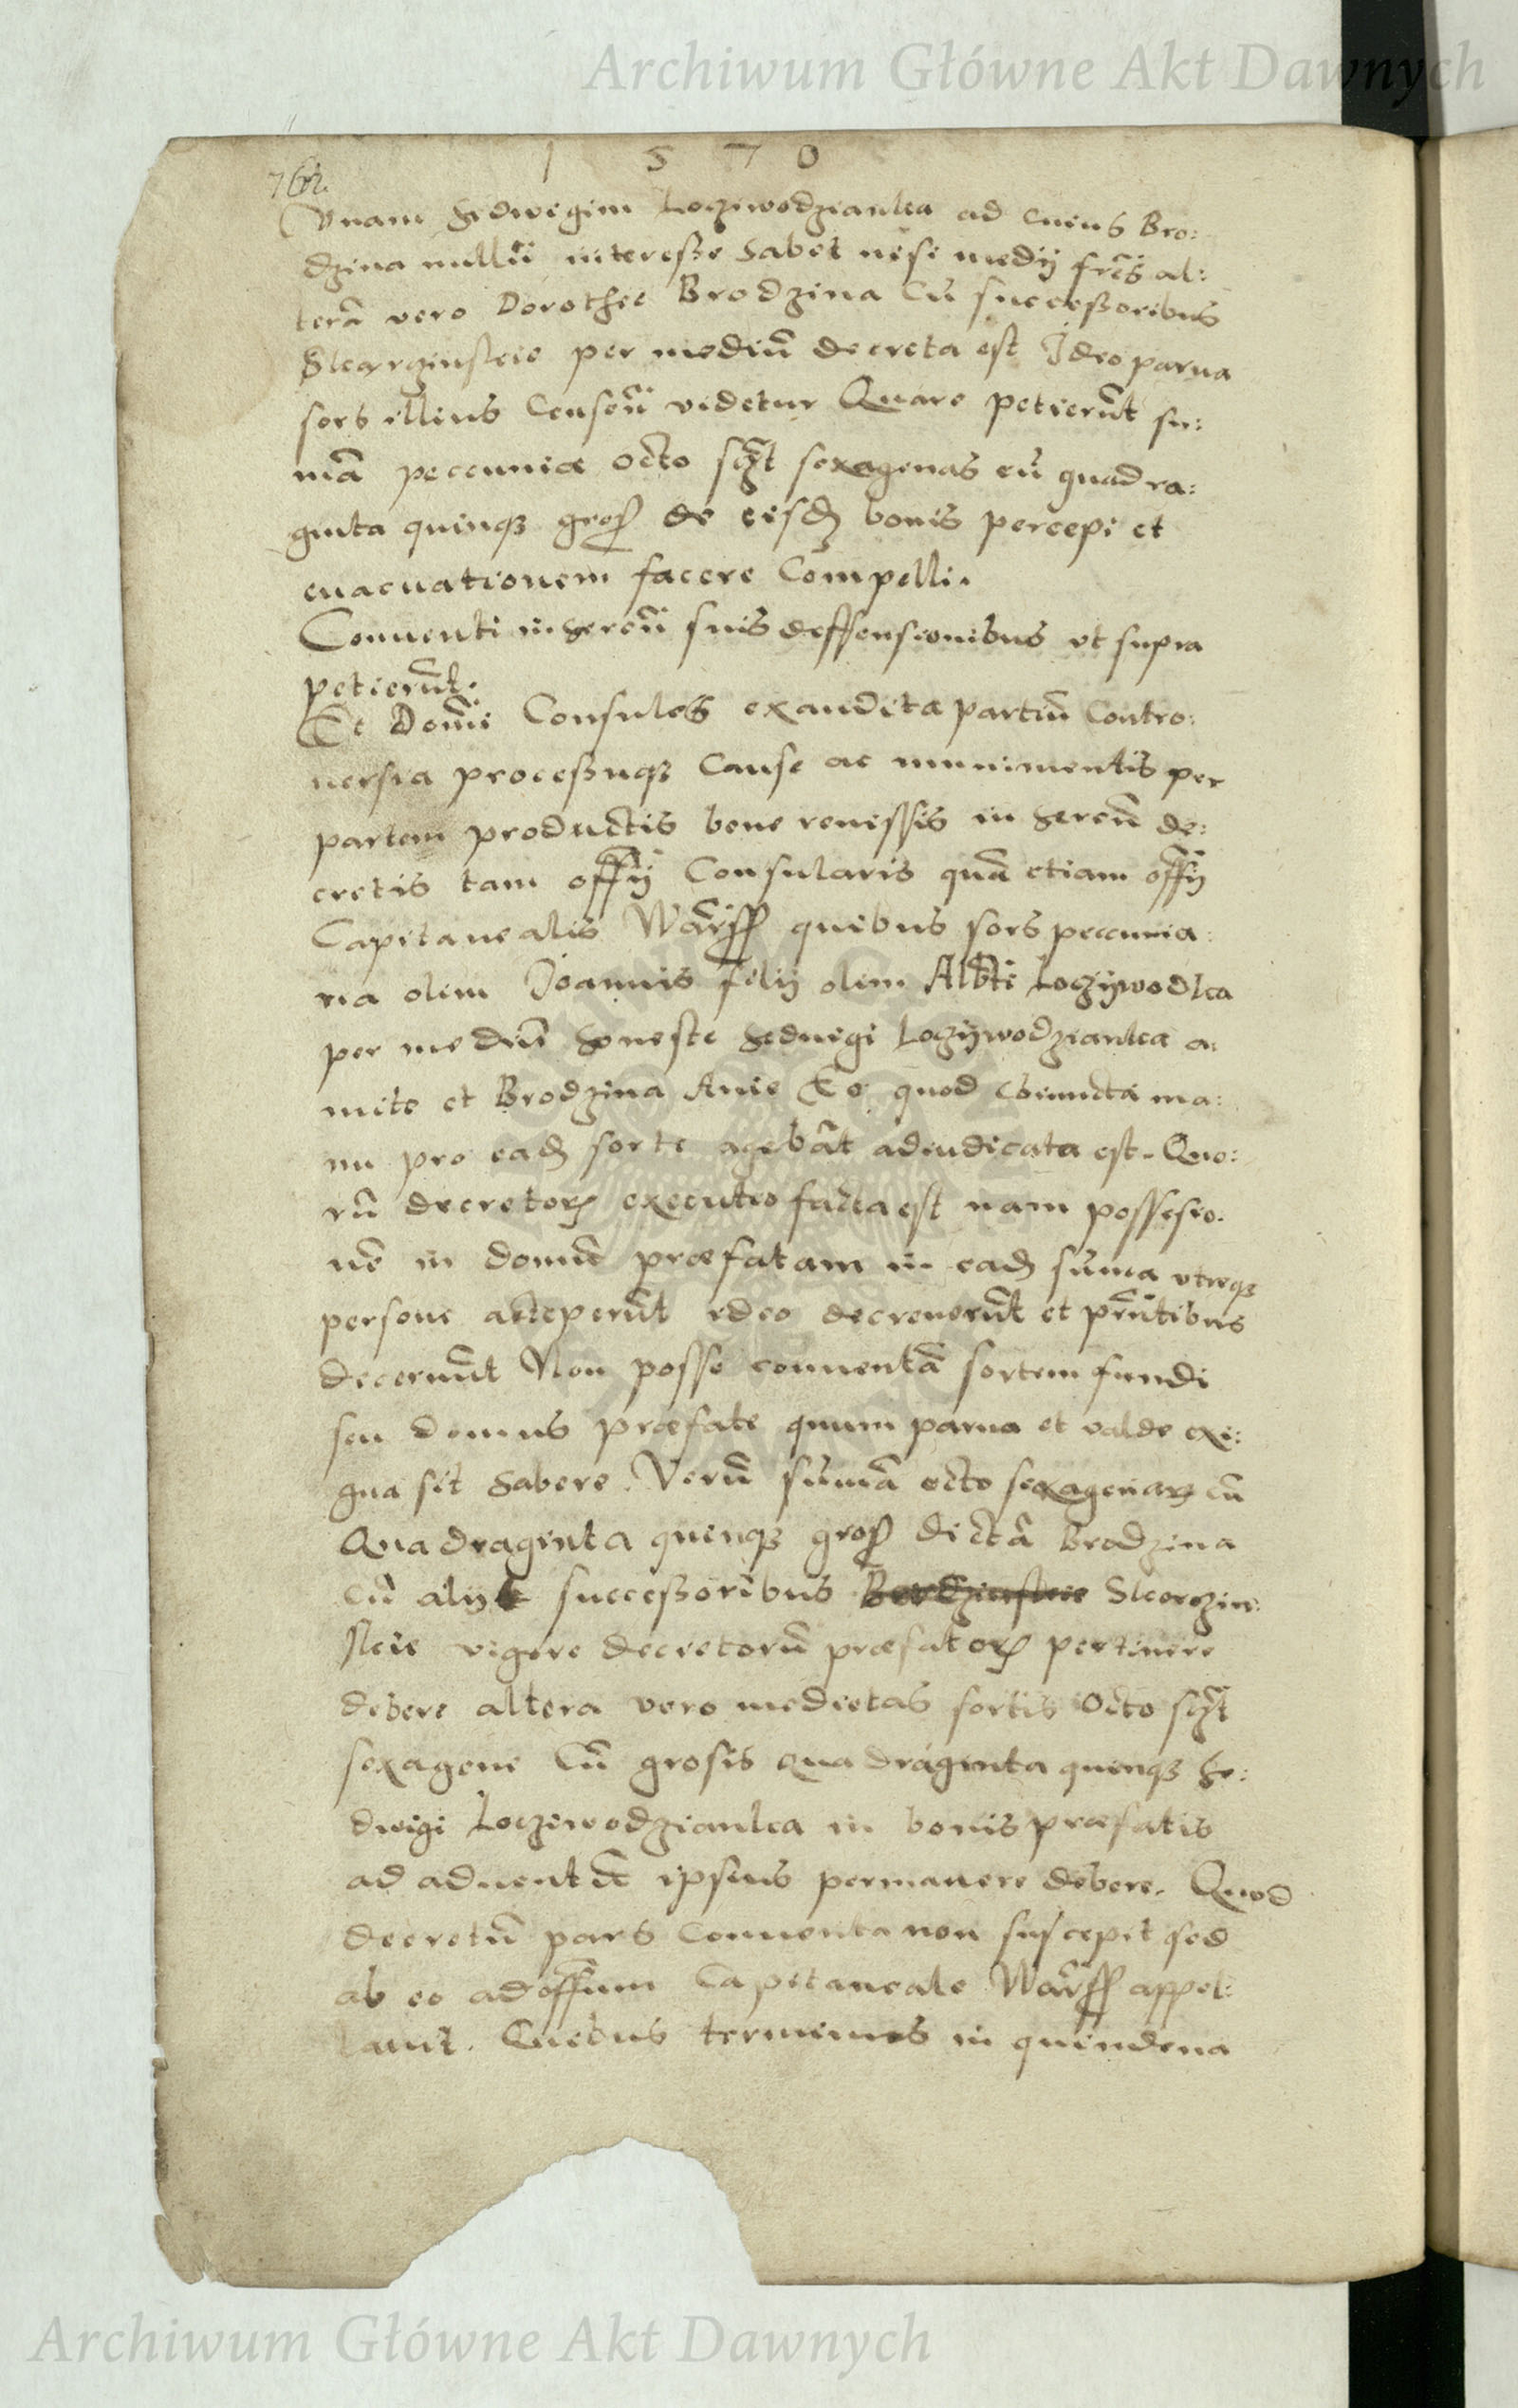 Archiwum Główne Akt Dawnych
1 5 7 0
762.
Vnam Hedwigim Locziwodzianka ad cuius Bro:
dzina nullū interesse habet nisi medij frēs al:
terā vero Dorothee Brodzina Cū successoribus
per mediū decreta est Ideo parua
sors illius Censeri videtur Quare petierūt su:
mā peccuniæ octo sexagenas cū quadra:
ginta quinqʒ gros de eisdꝫ bonis percepi et
euacuationem facere Compelli.
Conuenti inherendo suis deffensionibus vt supra
petierūt.
Et Domī Consules exaudita partiū Contro:
uersia processuqʒ Cause ac munimentis per
partem productis bene reuissis in de:
cretis tam offij Consularis quā etiam offij
Capitanealis Warss quibus sors peccunia:
ria olim Joannis filij olim Albti Loczywodka
per mediū honeste Heduigi Loczywodzianka a:
mite et Brodzina Auie Eo quod coniuncta ma:
nu pro eadꝫ sorte agebāt adiudicata est. Quo:
rū decretorꝫ executio facta est nam possesio:
nē in domū præfatam in eadꝫ sūma vtreqʒ
persone acceperūt ideo decreuerūt et pn̄tibus
decernūt Non posse conuentā sortem fundi
seu domus præfate quum parua et valde exi:
gua sit habere. Verū sūmā octo sexagenarꝫ cū
Quadraginta quinqʒ gros dictā Brodzina
cū alijs successoribus
vigore decretorū præfatorꝫ pertinere
debere altera vero medietas sortis Octo
sexagene Cū grosis quadraginta quinqʒ He:
dwigi Locziwodzianka in bonis præfatis
ad aduentū ipsius permanere debere. Quod
decretū pars Conuenta non suscepit sed
ab eo ad offium Capitaneale Warss appel:
lauit. Quibus terminus in quindena
Archiwum Główne Akt Dawnych